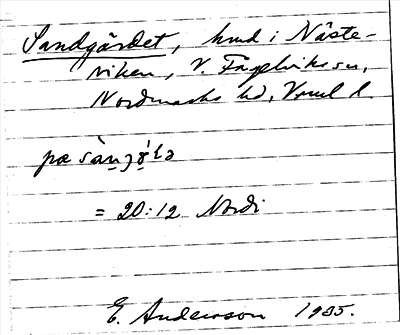 Sandgärdet, hmd i Näste-
viken, V. Fågelviks sn,
Nordmarks hd, Vrml l.
pæ sàn̥
= 20:12 Nordi
E. Andersson 1935.